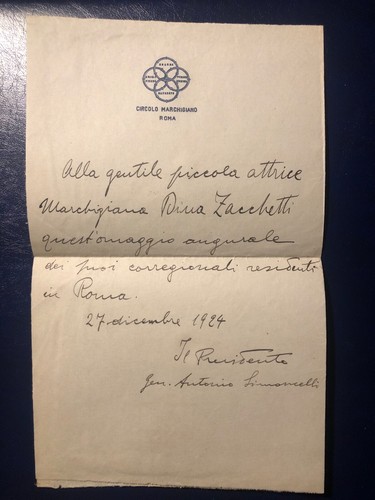 CIRCOLO MARCHIGIANO
ROMA
Alla gentile piccola attrice
Marchigiana Dina Zacchetti
quest'omaggio augurale
dei suoi corregionali residenti
in Roma.
27 dicembre 1924
Il Presidente
Gen. Antonio Simoncelli